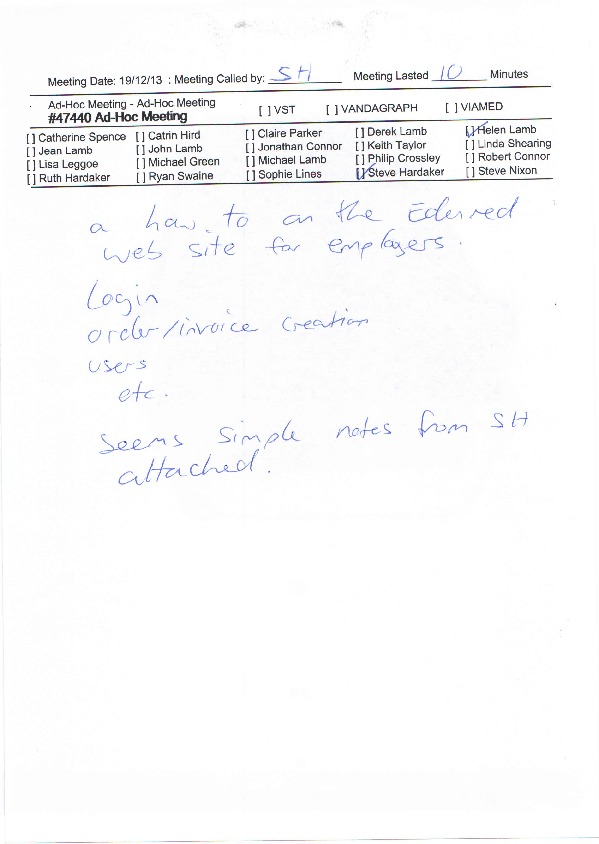 Meeting Date: 19/12/13 : Meeting Called by: SH Meeting Lasted 10 Minutes
Ad-Hoc Meeting - Ad-Hoc Meeting
#47440 Ad-Hoc Meeting [ ] VST [ ] VANDAGRAPH [ ] VIAMED
[ ] Catherine Spence [ ] Catrin Hird [ ] Claire Parker [ ] Derek Lamb [✓] Helen Lamb
[ ] Jean Lamb [ ] John Lamb [ ] Jonathan Connor [ ] Keith Taylor [ ] Linda Shearing
[ ] Lisa Leggoe [ ] Michael Green [ ] Michael Lamb [ ] Philip Crossley [ ] Robert Connor
[ ] Ruth Hardaker [ ] Ryan Swaine [ ] Sophie Lines [✓] Steve Hardaker [ ] Steve Nixon
a how to on the Edenred
web site for employers.
Login
order/invoice creation
users
etc.
Seems simple notes from SH
attached.